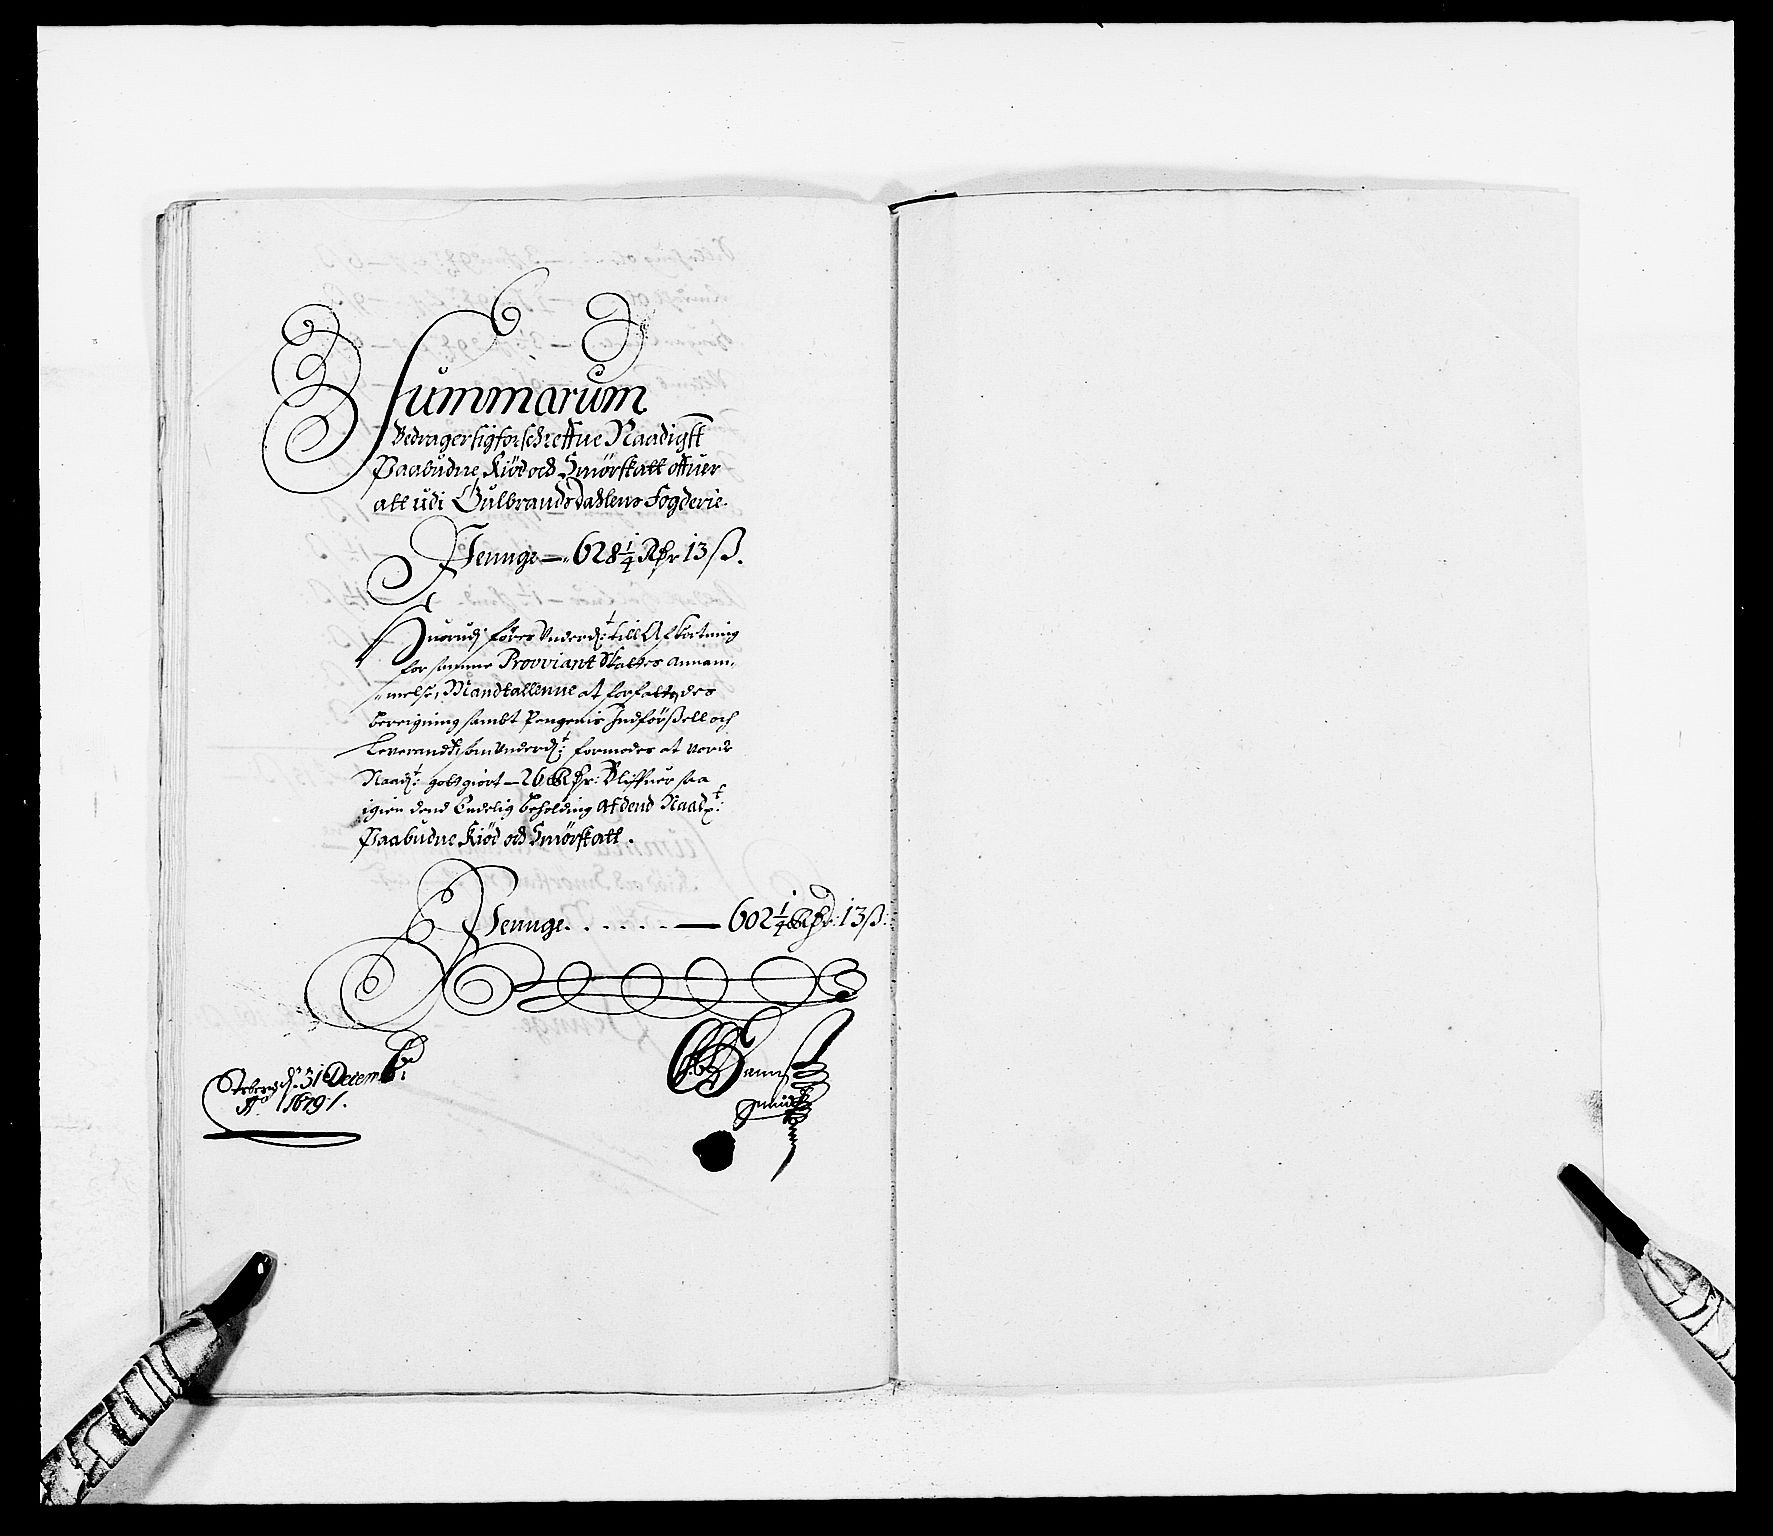 Summarum
Bedrager sig forschreffne Naadigst
Paabudne Kiöd och Smörskatt offuer
alt udi Gulbrandsdahlens fogderie.
Pennge — 628 1/4 Rdr 13 ß.
Huorudj föres Underd: till Afkortning
for samme Provviant Skattes annam-
melse, Mandtallenne at forfatte, des
bereigning sambt Pengenis Indförßell och
Leverandtz, som Underd: formodes at vorde
Naad: gott giort — 26 Rdr: Bliffuer saa
igien dend Endelig beholding af dend Naad:
Paabudne Kiöd och Smörskatt.
Penge. . . . . . — 602 1/4 Rdr: 13 ß:
d: 31 Decemb:
Ao 1679.